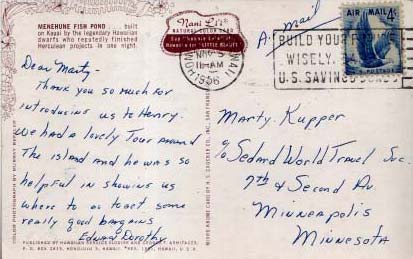 MENEHUNE FISH POND . . . built
on Kauai by the legendary Hawaiian
dwarfs who reputedly finished
Herculean projects in one night.
Nani Li'i
NATURAL COLOR CARD
Hawaiian for "LITTLE BEAUTY"
A. Mail
AIR MAIL 4c
HONOLULU HAWAII
AM
1956
BUILD YOUR FUTURE
WISELY
U.S. SAVINGS
Dear Marty -
Thank you so much for
introducing us to Henry.
We had a lovely Tour around
The island and he was so
helpful in showing us
where to go to get some
really good bargains
Edw and Dorothy
Marty Kupper
c/o Sedmd World Travel Svc.
7th & Second Av.
Minneapolis
Minnesota
COLOR PHOTOGRAPH BY
PUBLISHED BY HAWAIIAN SERVICE
P. O. BOX 2835, HONOLULU 3, HAWAII
HAWAII, U.S.A.